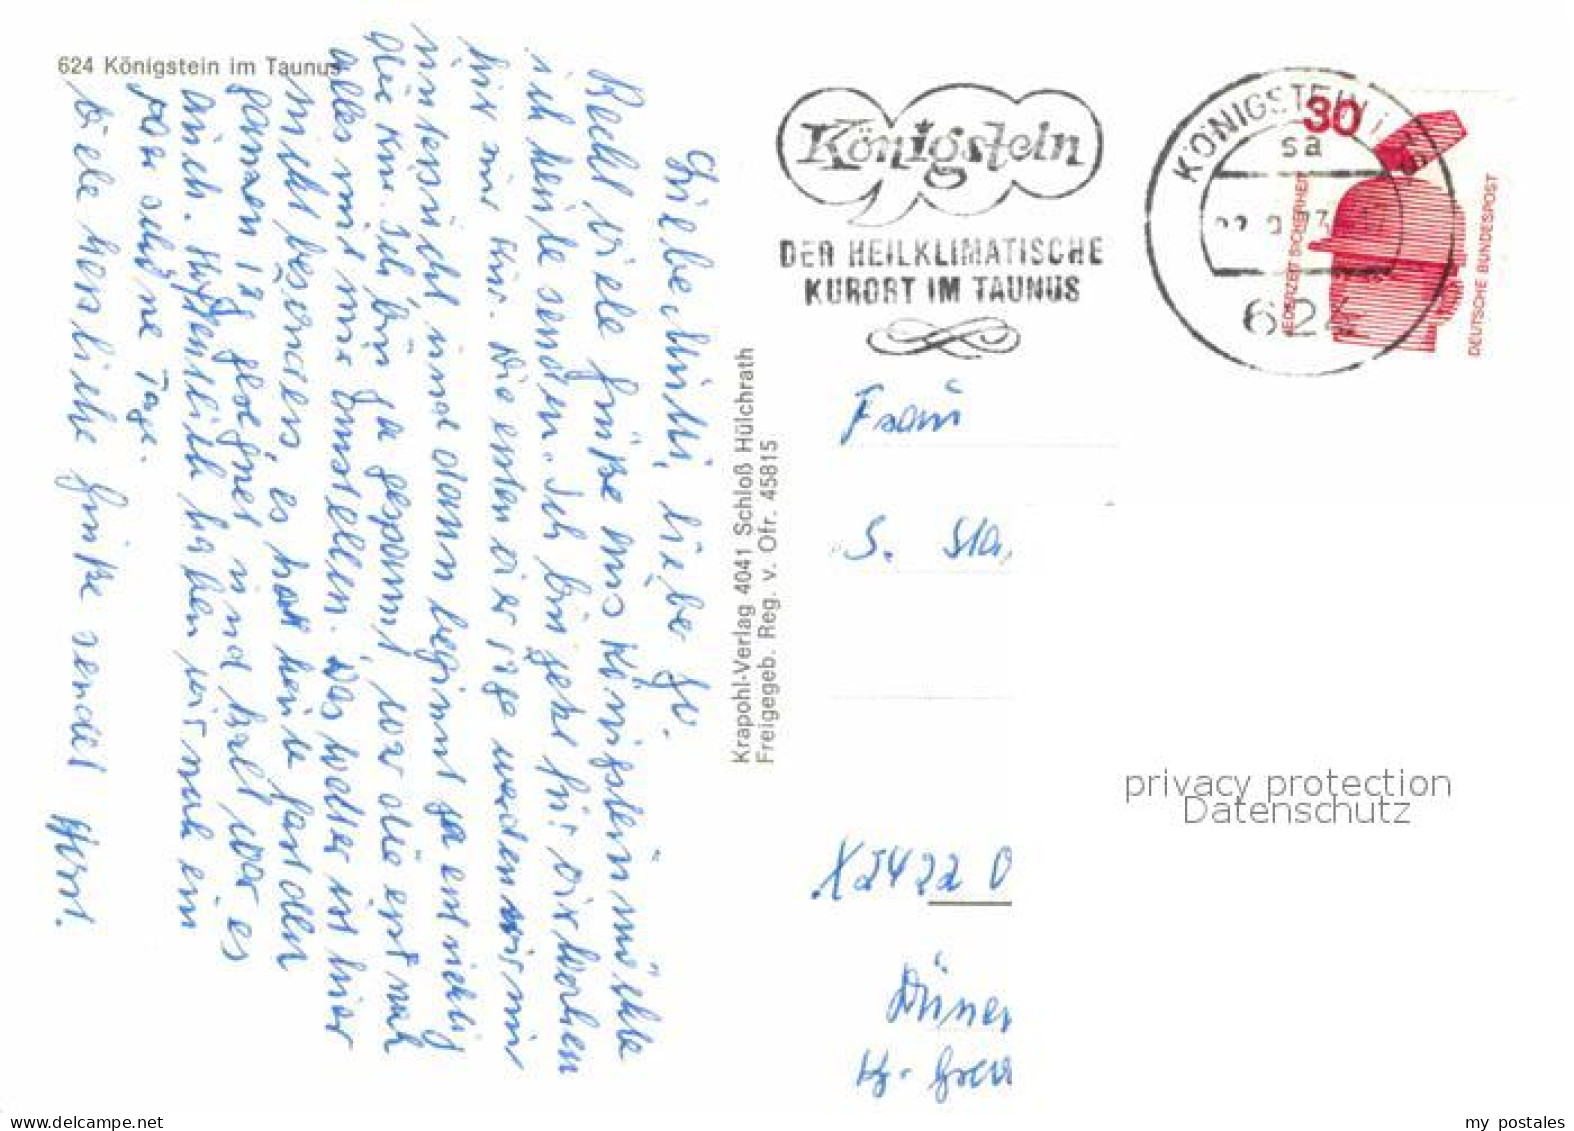 624 Königstein im Taunus
Liebe Mutti, liebe Ju.
Recht viele Grüße aus Königstein möchte
ich heute senden. Ich bin jetzt für vier Wochen
hier zur Kur. Die ersten vier Tage werden wir nur
untersucht und dann beginnt ja erst richtig
die Kur. Ich bin ja gespannt, was die erst noch
alles mit mir anstellen. Das Wetter ist hier
nicht besonders, es hat heute fast den
ganzen Tag geregnet und kalt war es
auch. Hoffentlich haben wir noch ein
paar schöne Tage.
Viele herzliche Grüße sendet Horst.
Krapohl-Verlag 4041 Schloß Hülchrath
Freigegeb. Reg. v. Ofr. 45815
Königstein
DER HEILKLIMATISCHE
KURORT IM TAUNUS
KÖNIGSTEIN
sa
624
30
JEDERZEIT SICHERHEIT
DEUTSCHE BUNDESPOST
Frau
S. Sta
X 2422 D
privacy protection
Datenschutz
my postales